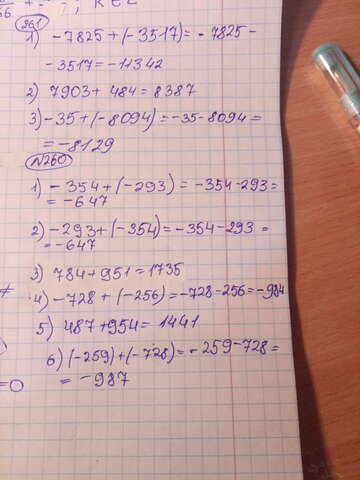 261
1) -7825+(-3517)= -7825-
-3517=-11342
2) 7903+484=8387
3)-35+(-8094)=-35-8094=
=-8129
N260
1) -354+(-293)=-354-293=
=-647
2)-293+(-354)=-354-293=
=-647
3) 784+951=1735
4) -728+(-256)=-728-256=-984
5) 487+954=1441
6) (-259)+(-728)=-259-728=
=0 =-987